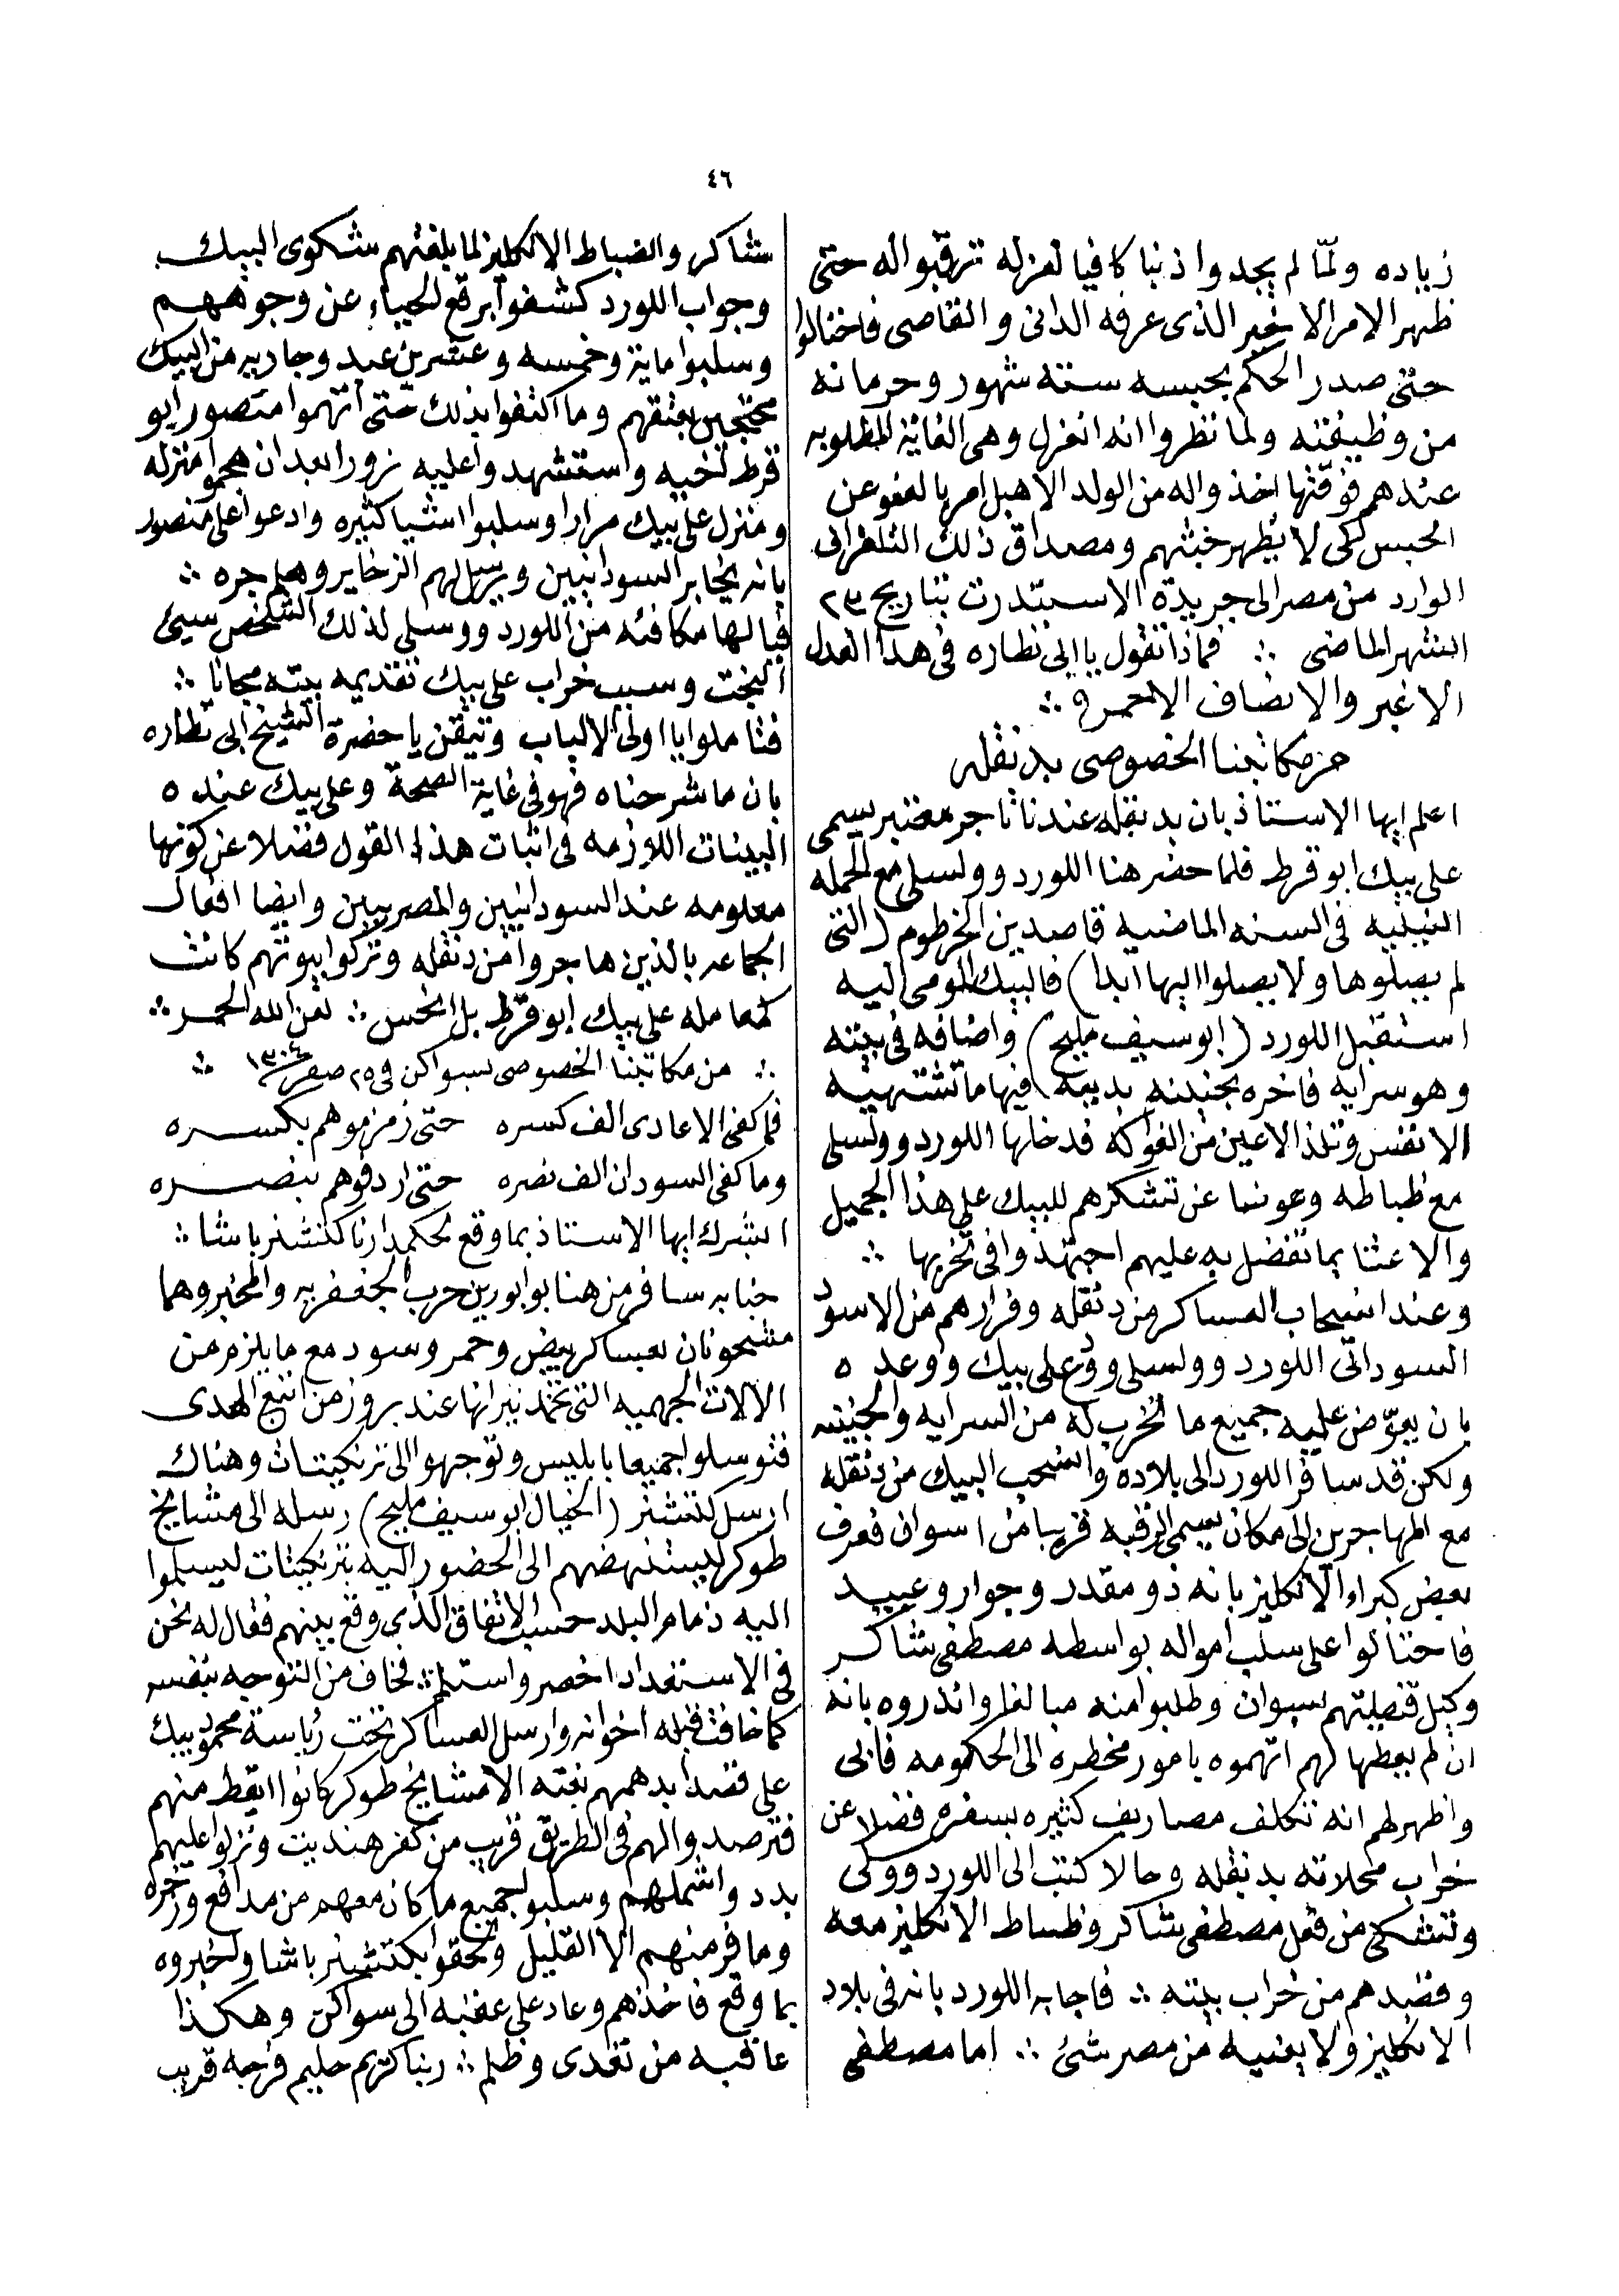 ٤٦
زياده ولمّا لم يجدوا ذنبا كافيا لعزله ترقّبوا له حتى
ظهر الامر الاغبر الذى عرفه الدانى والقاصى فاحتالوا
حتى صدر الحكم بحبسه ستة شهور وحرمانه
من وظيفته ولما نظروا انه انعزل وهى الغاية المطلوبه
عندهم فوقتها اخذوا له من الولد الاهبل امر بالعفو عن
الحبس لكى لا يظهر خبثهم ومصداق ذلك التلغراف
الوارد من مصر الى جريدة الاستندرت بتاريخ ٢٣
الشهر الماضى ∴ فماذا تقول يا ابى نظاره فى هذا العدل
الاغبر والانصاف الاحمر ∴
من مكاتبنا الخصوصى بدنقله
اعلم ايها الاستاذ بان بدنقله عندنا تاجر معتبر يسمى
على بيك ابو قرط فلما حضر هنا اللورد وولسلى مع الحمله
النيليه فى السنه الماضيه قاصدين الخرطوم (التى
لم يصلوها ولا يصلوا اليها ابدا) فالبيك المومى اليه
استقبل اللورد (ابو سيف مليح) واضافه فى بيته
وهو سرايه فاخره بجنينه بديعه فيها ما تشتهيه
الانفس وتلذ الاعين من الفواكه فدخلها اللورد وولسلى
مع ظباطه وعوضا عن تشكرهم للبيك على هذا الجميل
والاعتنا بما تفضل به عليهم اجتهدوا فى تخربها ∴
وعند انسحاب العساكر من دنقله وفرارهم من الاسود
السودانى اللورد وولسلى ودّع على بيك ووعده
بان يعوّض عليه جميع ما تخرب له من السرايه والجنينه
ولكن قد سافر اللورد الى بلاده وانسحب البيك من دنقله
مع المهاجرين الى مكان يسمى الرقبه قريبا من اسوان فعرف
بعض كبراء الانكليز بانه ذو مقدر وجوار وعبيد
فاحتالوا على سلب امواله بواسطه مصطفى شاكر
وكيل قنصليتهم بسوان وطلبوا منه مبالغا وانذروه بانه
ان لم يعطها لهم اتهموه بامور مخطره الى الحكومه فابى
واظهر لهم انه تكلف مصاريف كثيره بسفره فضلا عن
خراب محلاته بدنقله وحالا كتب الى اللورد ووكى
وتشكى من فعل مصطفى شاكر وظباط الانكليز معه
وقصدهم من خراب بيته ∴ فاجابه اللورد بانه فى بلاد
الانكليز ولا يعنيه من مصر شئ ∴ اما مصطفى
شاكر والضباط الانكليز لما بلغتهم شكوى البيك
وجواب اللورد كشفوا برقع الحياء عن وجوههم
وسلبوا ماية وخمسه وعشرين عبد وجاريه من البيك
محتجين بعتقهم وما اكتفوا بذلك حتى اتهموا منصور ابو
قرط لخيه واستشهدوا عليه زورا بعد ان هجموا منزله
ومنزل على بيك مرارا وسلبوا اشيا كثيره وادعوا على منصور
بانه يخابر السودانيين ويرسل لهم الزخاير وهلم جره ∴
فيالها مكافئه من اللورد وولسلى لذلك الشخص سيئ
البخت وسبب خراب على بيك تقديمه بيته مجانا ∴
فتاملوا يا اولى الالباب وتيقن يا حضرة الشيخ ابى نظاره
بان ما شرحناه فهو فى غاية الصحة وعلى بيك عنده
البينات اللازمه فى اثبات هذا القول فضلا عن كونها
معلومه عند السودانيين والمصريين وايضا افعال
الجماعه بالذين هاجروا من دنقله وتركوا بيوتهم كانت
كمعامله على بيك ابو قرط بل انحس ∴ لعن الله الحمر ∴
∴ من مكاتبنا الخصوصى بسواكن فى ٢٥ صفر ١٣٠٤ ∴
فما كفى الاعادى الف كسره حتى زمزموهم بكسره
وما كفى السودان الف نصره حتى اردفوهم بنصره
ابشرك ايها الاستاذ بما وقع لحكمدارنا كتشنر باشا ∴
جنابه سافر من هنا بوابورين حرب الجعفريه والمخبر وهما
مشحونان بعساكر بيض وحمر وسود مع ما يلزم من
الالات الجهميه التى تخمد نيرانها عند بروز من اتبع المهدى
فتوسلوا جميعا بابليس وتوجهوا الى ترنكيتات وهناك
ارسل كتشنر (الخيال ابو سيف مليح) رسله الى مشايخ
طوكر ليستنهضهم الى الحضور اليه بترنكيتات ليسلموا
اليه زمام البلد حسب الاتفاق الذى وقع بينهم فقال له نحن
فى الاستعداد احضر واستلم ∴ فخاف من التوجه بنفسه
كما خافت قبله اخوانه وارسل العساكر تحت رئاسة محمود بيك
على قصد ان يدهمهم بغته الا مشايخ طوكر كانوا ايقظ منهم
فترصدوا لهم فى الطريق قريب من كفر هنديت ونزلوا عليهم
بدد واشملهم وسلبوا جميع ما كان معهم من مدافع وزخره
وما فر منهم الا القليل ولحقوا بكتشنر باشا واخبروه
بما وقع فاخذهم وعاد على عقبه الى سواكن وهكذا
عاقبه من تعدى وظلم ∴ ربنا كريم حليم فرجه قريب